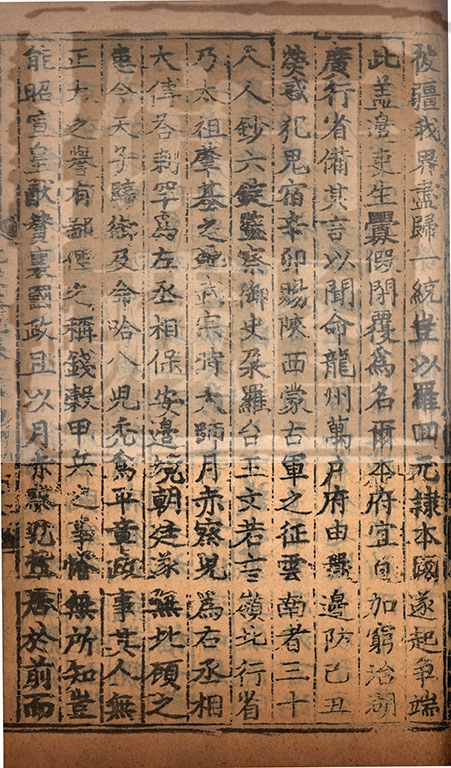 彼疆我界盡歸一統豈以羅囬元隷本國遂起爭端
此盖邊吏生釁假閉覆爲名爾本府宜自加窮治湖
廣行省備其言以聞命龍州萬户府由嚴邊防己丑
熒惑犯鬼宿辛卯賜陜西蒙古軍之征雲南者三十
八人鈔六錠監察御史朶羅台王文若言嶺北行省
乃太祖肇基之地武宗時太師月赤察兒爲右丞相
太傅荅剌罕爲左丞相保安邊境朝廷遂無北顧之
患今天子臨御及命哈八兒禿爲平章政事其人無
正大之譽有鄙俚之稱錢穀甲兵之事懵無所知豈
能昭宣皇猷賛襄國政且以月赤察兒輩居於前而